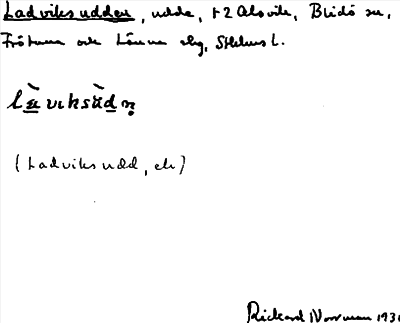 Ladviksudden, udde, t 2 Alsvik, Blidö sn,
Frötuna och Länna slg, Sthlms l.
(Ladviksudd, ek)
Rickard Norrman 193